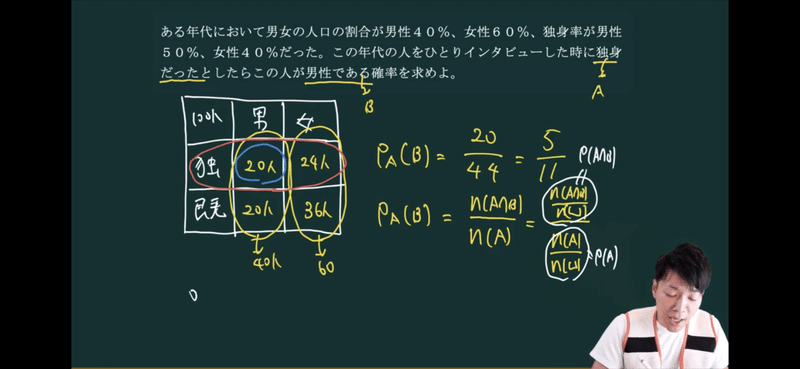 ある年代において男女の人口の割合が男性４０％、女性６０％、独身率が男性
５０％、女性４０％だった。この年代の人をひとりインタビューした時に独身
だったとしたらこの人が男性である確率を求めよ。
A
B
100人 男 女
独 20人 24人
既 20人 36人
40人 60
P_A(B) = 20/44 = 5/11
P(A∩B)
P_A(B) = n(A∩B)/n(A) = n(A∩B)/n(U) / n(A)/n(U)
P(A)